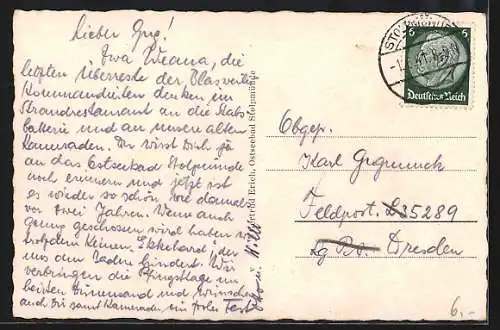 Lieber Gug!
Zwa Weana, die
letzten Überreste der Blasver
Kommandierten denken im
Strandrestaurant an die Stabs
batterie und an unsere alten
Kameraden. Du wirst Dich ja
an das Ostseebad Stolpmünde
noch erinnern und jetzt ist
es wieder so schön, wie damals
vor zwei Jahren. Wenn auch
genug geschossen wird haben wir
trotzdem keinen "Ekkehard", der
uns den Baden hindert. Wir
verbringen die Pfingsttage im
besten Zustand und wünschen
auch Dir samt Kameraden ein frohes Fest
Willi
Erich, Ostseebad Stolpmünde
STOLPMÜNDE
6 6
Deutsches Reich
Obgefr.
Karl
Feldpost 35289
Dresden
6,-